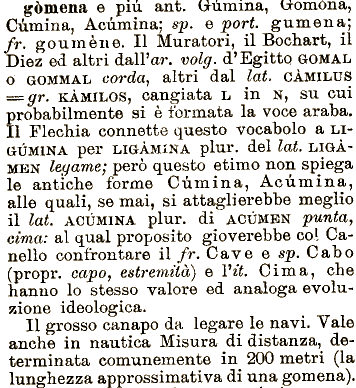 gòmena e piú ant. Gúmina, Gomòna,
Cúmina, Acúmina; sp. e port. gumena;
fr. goumène. Il Muratori, il Bochart, il
Diez ed altri dall'ar. volg. d'Egitto GOMAL
o GOMMAL corda, altri dal lat. CÀMILUS
=gr. KÀMILOS, cangiata L in N, su cui
probabilmente si è formata la voce araba.
Il Flechia connette questo vocabolo a LI-
GÚMINA per LIGÀMINA plur. del lat. LIGÀ-
MEN legame; però questo etimo non spiega
le antiche forme Cúmina, Acúmina,
alle quali, se mai, si attaglierebbe meglio
il lat. ACÚMINA plur. di ACÚMEN punta,
cima: al qual proposito gioverebbe col Ca-
nello confrontare il fr. Cave e sp. Cabo
(propr. capo, estremità) e l'it. Cima, che
hanno lo stesso valore ed analoga evolu-
zione ideologica.
Il grosso canapo da legare le navi. Vale
anche in nautica Misura di distanza, de-
terminata comunemente in 200 metri (la
lunghezza approssimativa di una gomena).